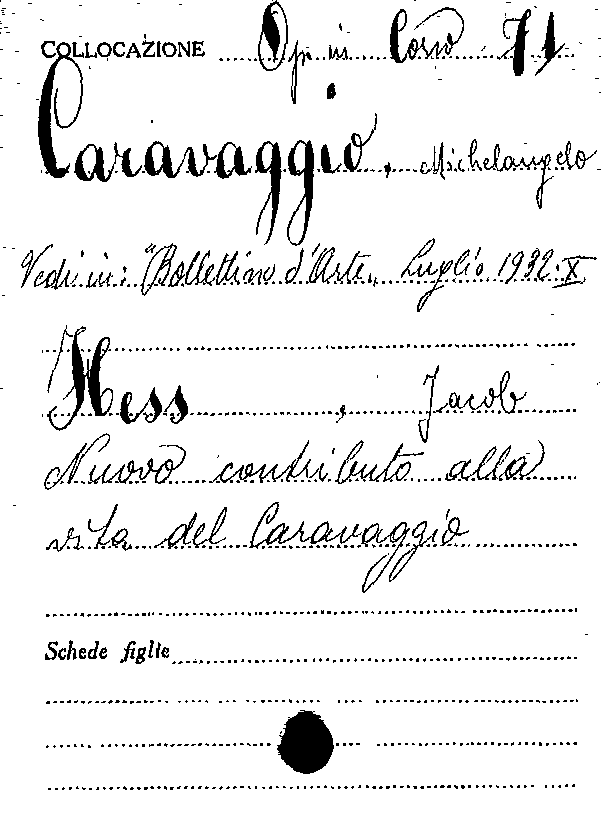 COLLOCAZIONE Op. in Corso 71
Caravaggio, Michelangelo
Vedi in: "Bollettino d'Arte„ Luglio 1932-X
Hess, Jacob
Nuovo contributo alla
vita del Caravaggio
Schede figlie